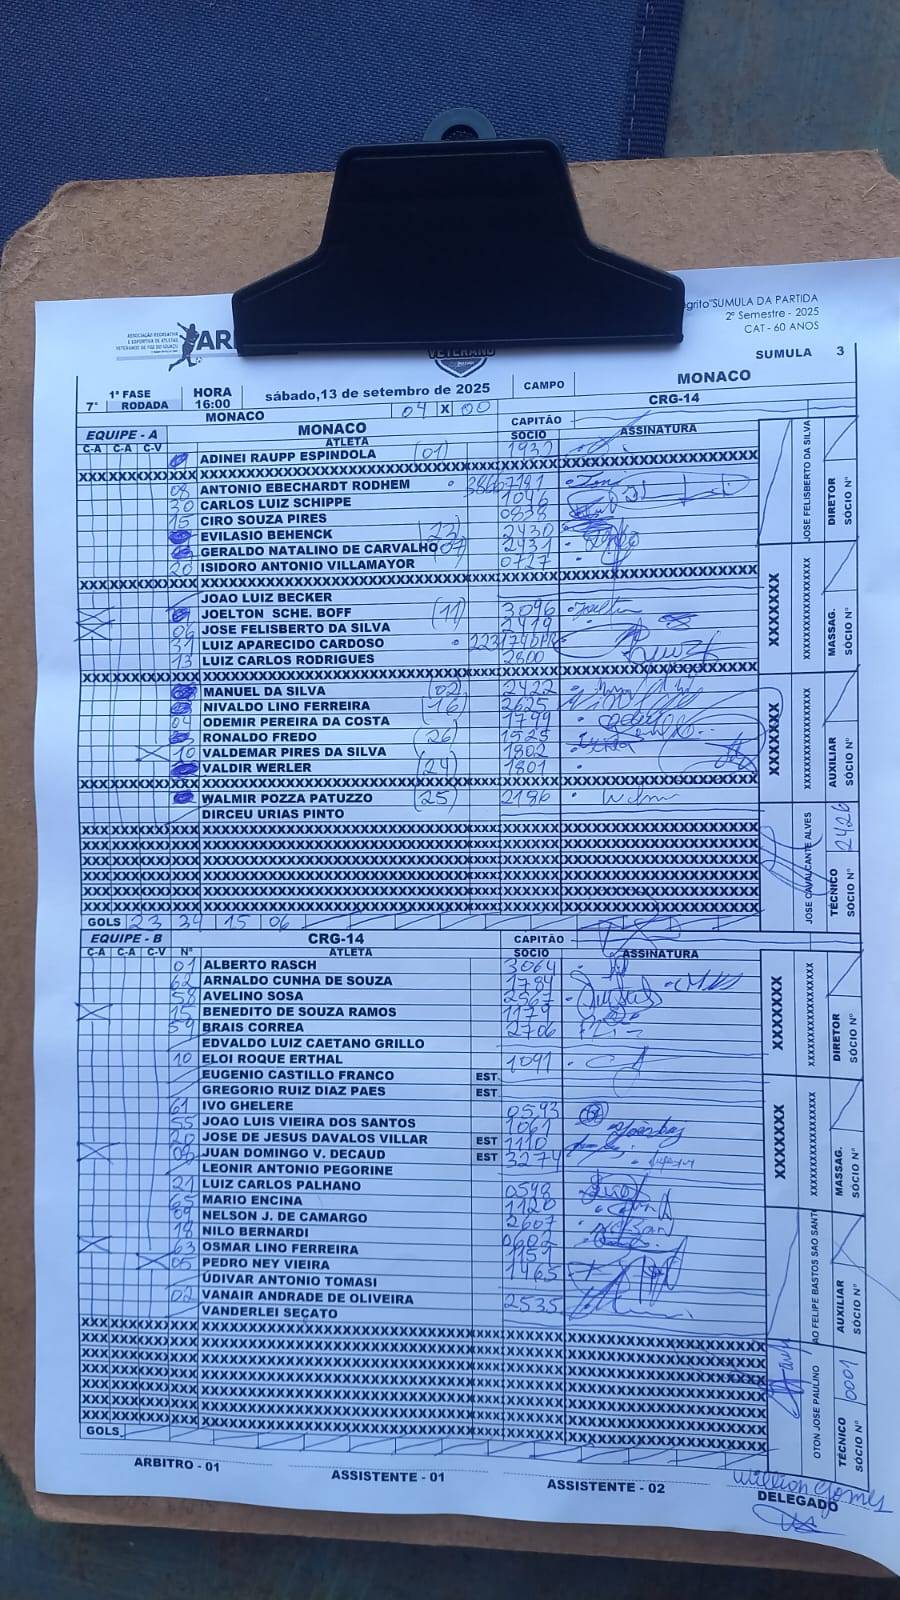 ASSOCIAÇÃO RECREATIVA
E ESPORTIVA DE ATLETAS
VETERANOS DE FOZ DO IGUAÇU
AR
VETERANO
egrito"SUMULA DA PARTIDA
2º Semestre - 2025
CAT - 60 ANOS
SUMULA 3
7ª 1ª FASE RODADA HORA 16:00 sábado,13 de setembro de 2025 CAMPO MONACO
MONACO 04 X 00 CRG-14
EQUIPE - A MONACO CAPITÃO
C-A C-A C-V ATLETA SÓCIO ASSINATURA
ADINEI RAUPP ESPINDOLA (01) 1932
08 ANTONIO EBECHARDT RODHEM
30 CARLOS LUIZ SCHIPPE 1046
15 CIRO SOUZA PIRES 0838
EVILASIO BEHENCK (23) 2430
GERALDO NATALINO DE CARVALHO (07) 2431
20 ISIDORO ANTONIO VILLAMAYOR 0727
JOAO LUIZ BECKER
JOELTON SCHE. BOFF (11) 3096
06 JOSE FELISBERTO DA SILVA 2419
LUIZ APARECIDO CARDOSO
13 LUIZ CARLOS RODRIGUES 2800
MANUEL DA SILVA (02) 2422
NIVALDO LINO FERREIRA (16) 2625
04 ODEMIR PEREIRA DA COSTA 1799
RONALDO FREDO (26) 1525
10 VALDEMAR PIRES DA SILVA 1802
VALDIR WERLER (24) 1801
WALMIR POZZA PATUZZO (25) 2196
DIRCEU URIAS PINTO
GOLS 23 34 15 06
JOSE FELISBERTO DA SILVA DIRETOR SÓCIO Nº
XXXXXXX XXXXXXXXXXXXXXXXX MASSAG. SÓCIO Nº
XXXXXXX XXXXXXXXXXXXXXXXX AUXILIAR SÓCIO Nº
JOSE CAVALCANTE ALVES TÉCNICO SÓCIO Nº 2426
EQUIPE - B CRG-14 CAPITÃO
C-A C-A C-V Nº ATLETA SÓCIO ASSINATURA
01 ALBERTO RASCH 3064
62 ARNALDO CUNHA DE SOUZA 1784
58 AVELINO SOSA 2567
15 BENEDITO DE SOUZA RAMOS 1179
59 BRAIS CORREA 2706
EDVALDO LUIZ CAETANO GRILLO
10 ELOI ROQUE ERTHAL 1091
EUGENIO CASTILLO FRANCO EST
GREGORIO RUIZ DIAZ PAES EST
61 IVO GHELERE 0593
55 JOAO LUIS VIEIRA DOS SANTOS 1061
20 JOSE DE JESUS DAVALOS VILLAR EST 1110
08 JUAN DOMINGO V. DECAUD EST 3274
LEONIR ANTONIO PEGORINE
21 LUIZ CARLOS PALHANO 0598
65 MARIO ENCINA 1120
NELSON J. DE CAMARGO 2607
18 NILO BERNARDI 0602
63 OSMAR LINO FERREIRA 1151
05 PEDRO NEY VIEIRA 1465
UDIVAR ANTONIO TOMASI
02 VANAIR ANDRADE DE OLIVEIRA 2535
VANDERLEI SECATO
GOLS
XXXXXXX XXXXXXXXXXXXXXXXX DIRETOR SÓCIO Nº
XXXXXXX XXXXXXXXXXXXXXXXX MASSAG. SÓCIO Nº
AO FELIPE BASTOS SAO SANT AUXILIAR SÓCIO Nº
OTON JOSE PAULINO TÉCNICO SÓCIO Nº 0001
ARBITRO - 01 ASSISTENTE - 01 ASSISTENTE - 02 DELEGADO
Willian Gomes